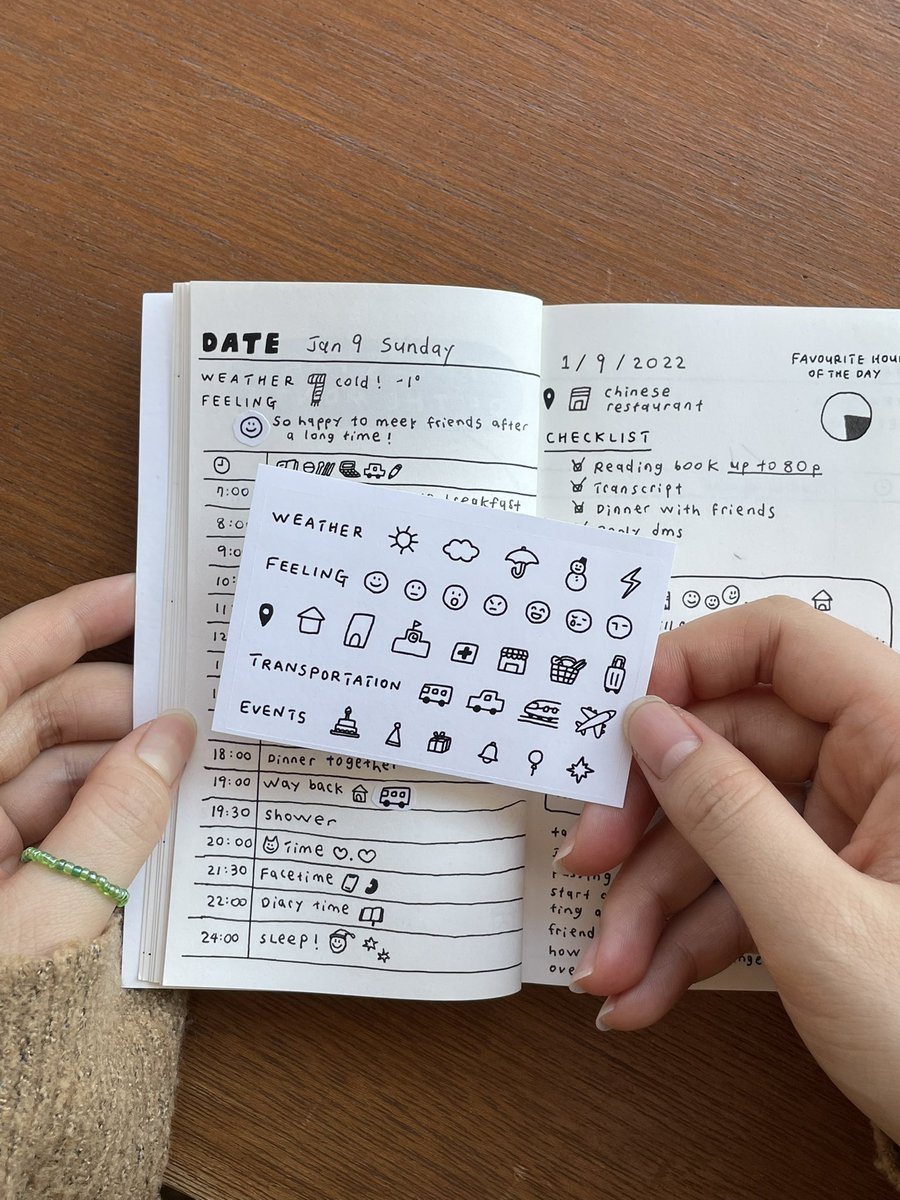 DATE Jan 9 Sunday
WEATHER cold! -1°
FEELING
So happy to meet friends after
a long time!
7:00 breakfast
18:00 Dinner together
19:00 Way back
19:30 shower
20:00 Time
21:30 Facetime
22:00 Diary time
24:00 sleep!
WEATHER
FEELING
TRANSPORTATION
EVENTS
1/9/2022
FAVOURITE HOUR
OF THE DAY
chinese
restaurant
CHECKLIST
Reading book up to 80p
Transcript
Dinner with friends
dms
start
friend
how